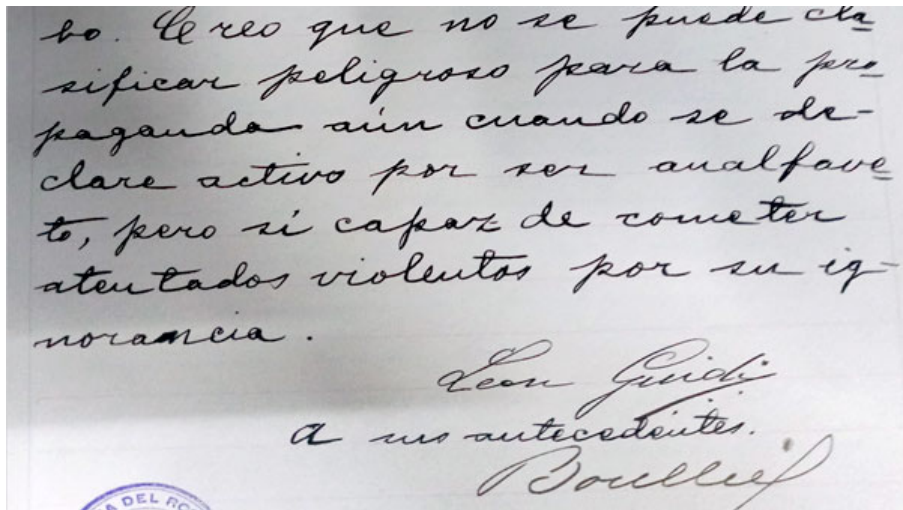 bo. Creo que no se puede cla
sificar peligroso para la pro
paganda aún cuando se de-
clare activo por ser analfave
to, pero si capaz de cometer
atentados violentos por su ig-
norancia.
Leon Guidi
A sus antecedentes.
DEL RO